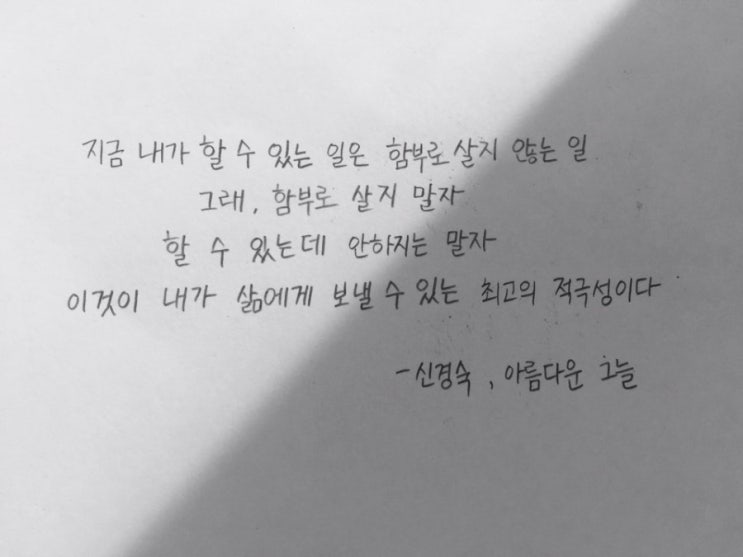 지금 내가 할 수 있는 일은 함부로 살지 않는 일
그래, 함부로 살지 말자
할 수 있는데 안하지는 말자
이것이 내가 삶에게 보낼 수 있는 최고의 적극성이다
-신경숙, 아름다운 그늘